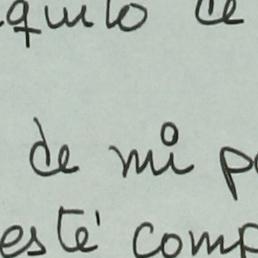 quilo de
de mi p
esté comp